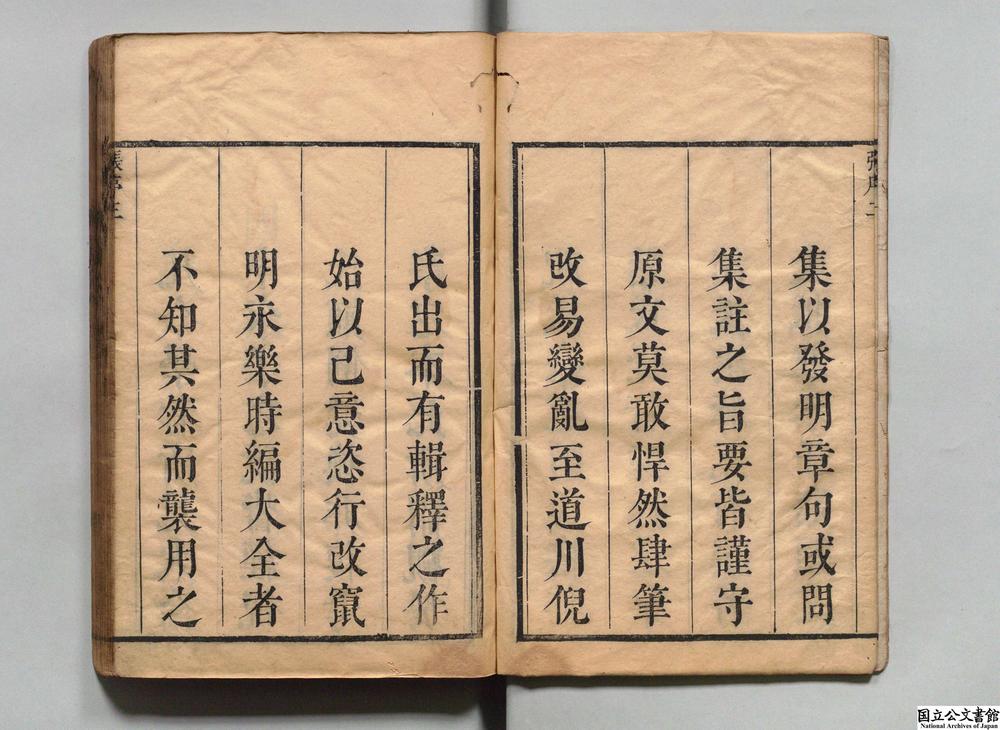 張序二
集以發明章句或問
集註之旨要皆謹守
原文莫敢悍然肆筆
改易變亂至道川倪
氏出而有輯釋之作
始以己意恣行改竄
明永樂時編大全者
不知其然而襲用之
張序三
国立公文書館
National Archives of Japan